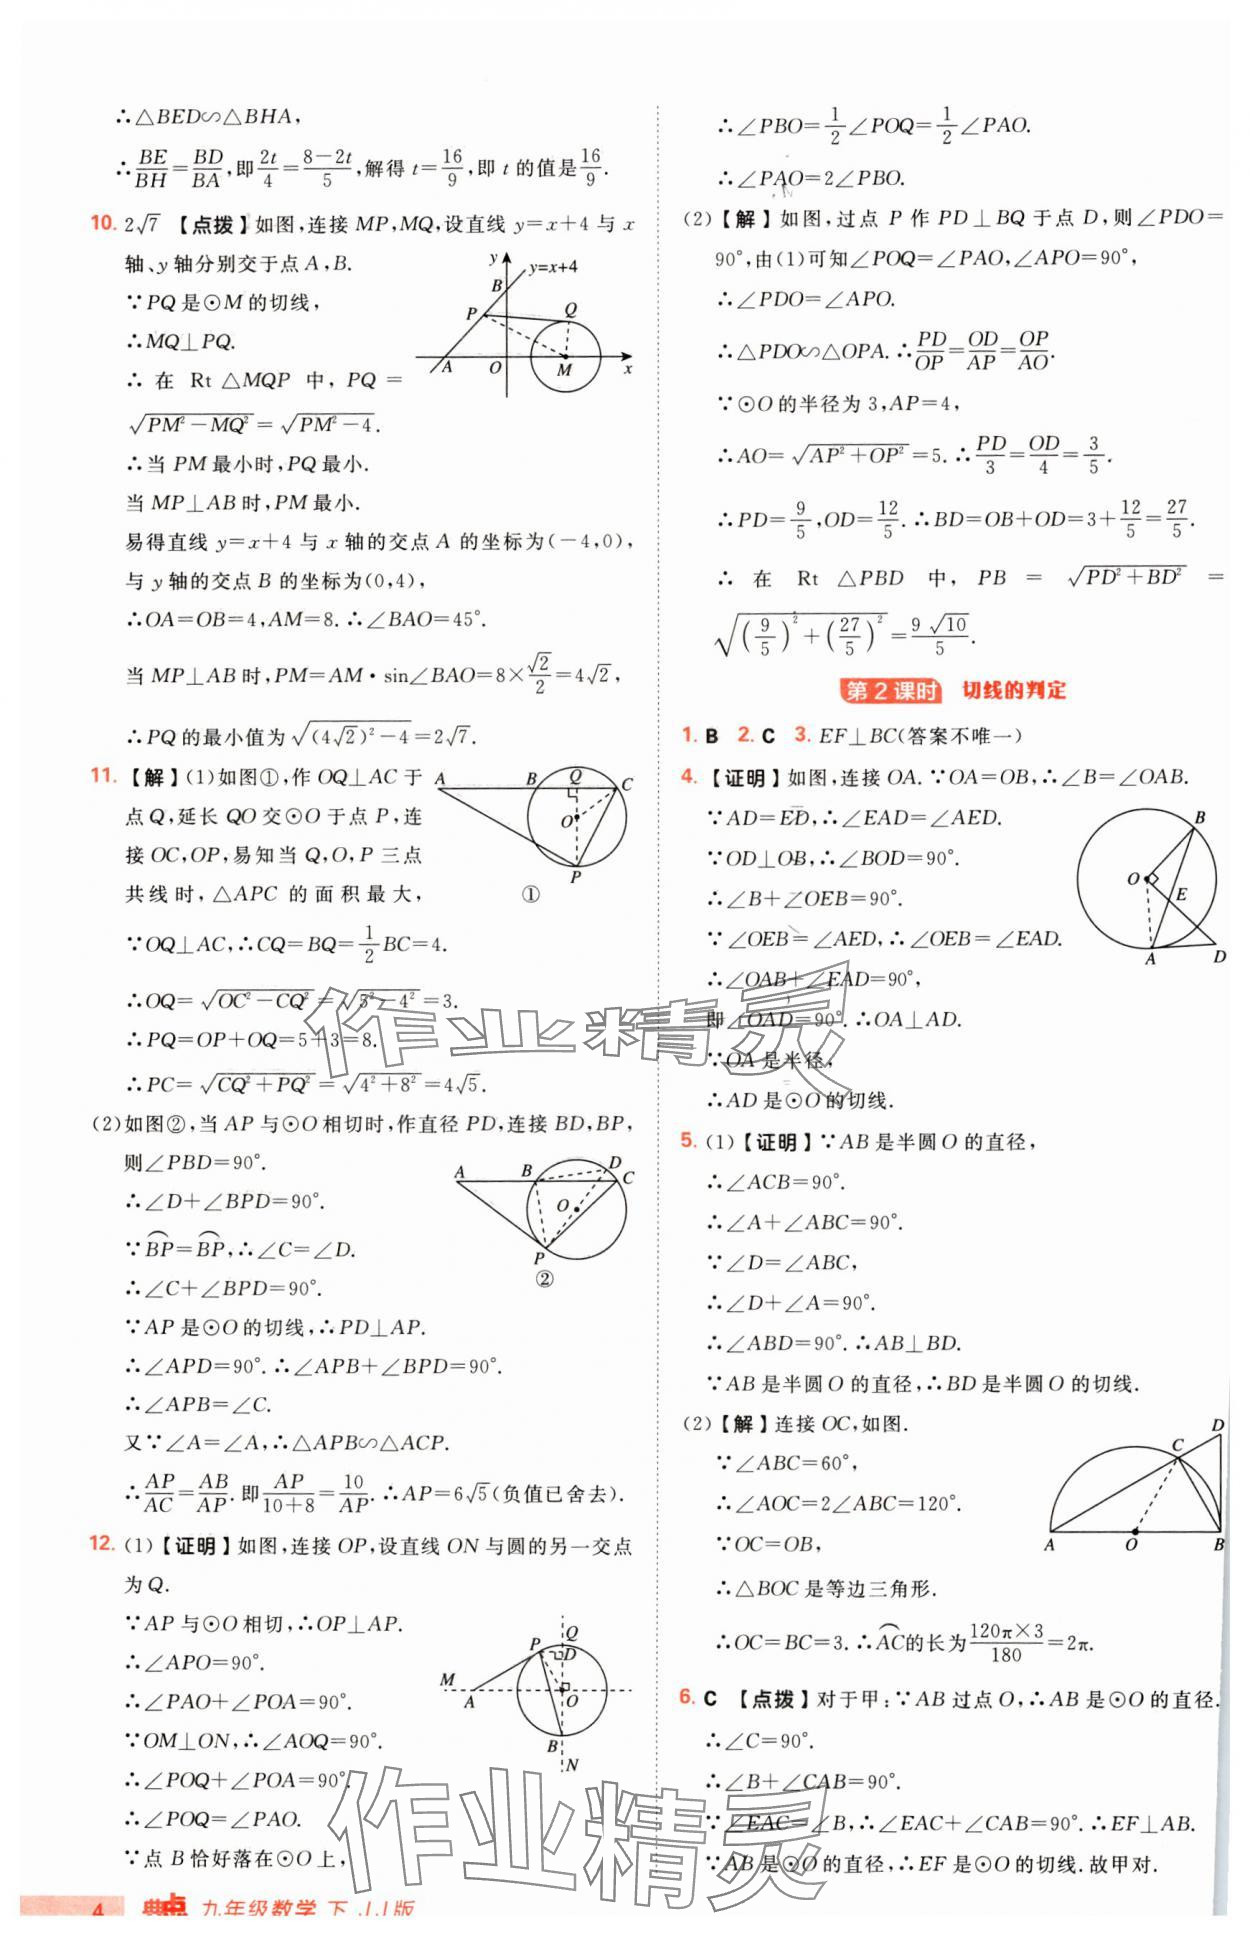 ∴△BED∽△BHA,
∴BE/BH=BD/BA,即2t/4=(8-2t)/5,解得 t=16/9,即 t 的值是16/9.
10. 2√7 【点拨】如图,连接 MP,MQ,设直线 y=x+4 与 x
轴、y 轴分别交于点 A,B.
∵PQ 是⊙M 的切线,
∴MQ⊥PQ.
∴ 在 Rt △MQP 中, PQ =
√(PM²-MQ²)=√(PM²-4).
∴当 PM 最小时,PQ 最小.
当 MP⊥AB 时,PM 最小.
易得直线 y=x+4 与 x 轴的交点 A 的坐标为(-4,0),
与 y 轴的交点 B 的坐标为(0,4),
∴OA=OB=4,AM=8. ∴∠BAO=45°.
当 MP⊥AB 时,PM=AM·sin∠BAO=8×√2/2=4√2,
∴PQ 的最小值为√((4√2)²-4)=2√7.
y
y=x+4
B
P
Q
A
O
M
x
11.【解】(1)如图①,作 OQ⊥AC 于
点 Q,延长 QO 交⊙O 于点 P,连
接 OC,OP,易知当 Q,O,P 三点
共线时,△APC 的面积最大,
∵OQ⊥AC,∴CQ=BQ=1/2BC=4.
∴OQ=√(OC²-CQ²)=√(5²-4²)=3.
∴PQ=OP+OQ=5+3=8.
∴PC=√(CQ²+PQ²)=√(4²+8²)=4√5.
A
B
Q
C
O
P
①
(2)如图②,当 AP 与⊙O 相切时,作直径 PD,连接 BD,BP,
则∠PBD=90°.
∴∠D+∠BPD=90°.
∵B͡P=B͡P,∴∠C=∠D.
∴∠C+∠BPD=90°.
∵AP 是⊙O 的切线,∴PD⊥AP.
∴∠APD=90°. ∴∠APB+∠BPD=90°.
∴∠APB=∠C.
又∵∠A=∠A,∴△APB∽△ACP.
∴AP/AC=AB/AP. 即AP/(10+8)=10/AP. ∴AP=6√5(负值已舍去).
A
B
D
C
O
P
②
12. (1)【证明】如图,连接 OP,设直线 ON 与圆的另一交点
为 Q.
∵AP 与⊙O 相切,∴OP⊥AP.
∴∠APO=90°.
∴∠PAO+∠POA=90°.
∵OM⊥ON,∴∠AOQ=90°.
∴∠POQ+∠POA=90°.
∴∠POQ=∠PAO.
∵点 B 恰好落在⊙O 上,
Q
P
D
M
A
O
B
N
∴∠PBO=1/2∠POQ=1/2∠PAO.
∴∠PAO=2∠PBO.
(2)【解】如图,过点 P 作 PD⊥BQ 于点 D,则∠PDO=
90°,由(1)可知∠POQ=∠PAO,∠APO=90°,
∴∠PDO=∠APO.
∴△PDO∽△OPA. ∴PD/OP=OD/AP=OP/AO.
∵⊙O 的半径为 3,AP=4,
∴AO=√(AP²+OP²)=5. ∴PD/3=OD/4=3/5.
∴PD=9/5,OD=12/5. ∴BD=OB+OD=3+12/5=27/5.
∴ 在 Rt △PBD 中, PB = √(PD²+BD²) =
√((9/5)²+(27/5)²)=9√10/5.
第 2 课时 切线的判定
1. B 2. C 3. EF⊥BC(答案不唯一)
4.【证明】如图,连接 OA. ∵OA=OB,∴∠B=∠OAB.
∵AD=ED,∴∠EAD=∠AED.
∵OD⊥OB,∴∠BOD=90°.
∴∠B+∠OEB=90°.
∵∠OEB=∠AED,∴∠OEB=∠EAD.
∴∠OAB+∠EAD=90°,
即∠OAD=90°. ∴OA⊥AD.
∵OA 是半径,
∴AD 是⊙O 的切线.
B
O
E
A
D
5. (1)【证明】∵AB 是半圆 O 的直径,
∴∠ACB=90°.
∴∠A+∠ABC=90°.
∵∠D=∠ABC,
∴∠D+∠A=90°.
∴∠ABD=90°. ∴AB⊥BD.
∵AB 是半圆 O 的直径,∴BD 是半圆 O 的切线.
(2)【解】连接 OC,如图.
∵∠ABC=60°,
∴∠AOC=2∠ABC=120°.
∵OC=OB,
∴△BOC 是等边三角形.
∴OC=BC=3. ∴A͡C的长为(120π×3)/180=2π.
D
C
A
O
B
6. C 【点拨】对于甲:∵AB 过点 O,∴AB 是⊙O 的直径.
∴∠C=90°.
∴∠B+∠CAB=90°.
∵∠EAC=∠B,∴∠EAC+∠CAB=90°. ∴EF⊥AB.
∵AB 是⊙O 的直径,∴EF 是⊙O 的切线. 故甲对.
作业精灵
作业精灵
4 典点 九年级数学 下 JJ版